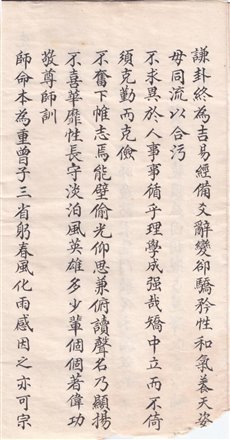 謙卦終為吉易經備爻辭變卻驕矜性和氣養天姿
毋同流以合污
不求異於人事事循乎理學成強哉矯中立而不倚
須克勤而克儉
不奮下帷志焉能壁偷光仰思兼俯讀聲名乃顯揚
不喜華靡性長守淡泊風英雄多少輩個個著偉功
敬尊師訓
師命本為重曾子三省躬春風化雨感因之亦可宗